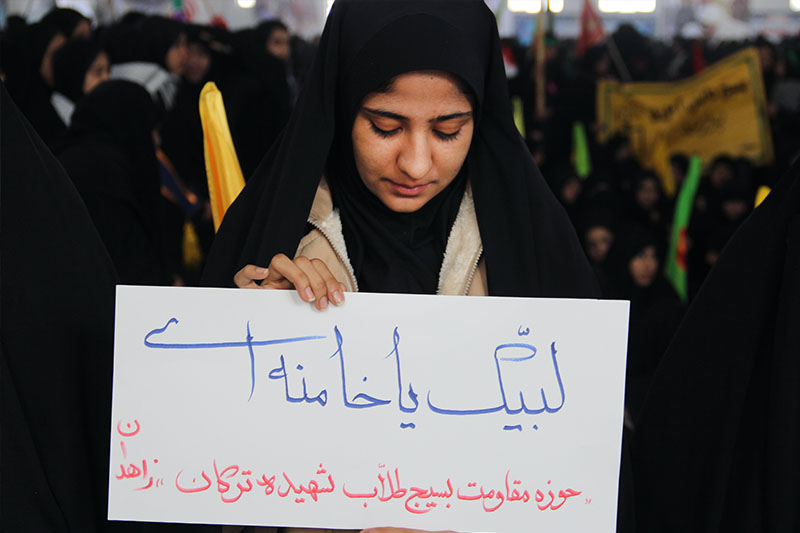 لبیّک یا خامنه ای
«حوزه مقاومت بسیج طلّاب شهیده ترکان» زاهدان